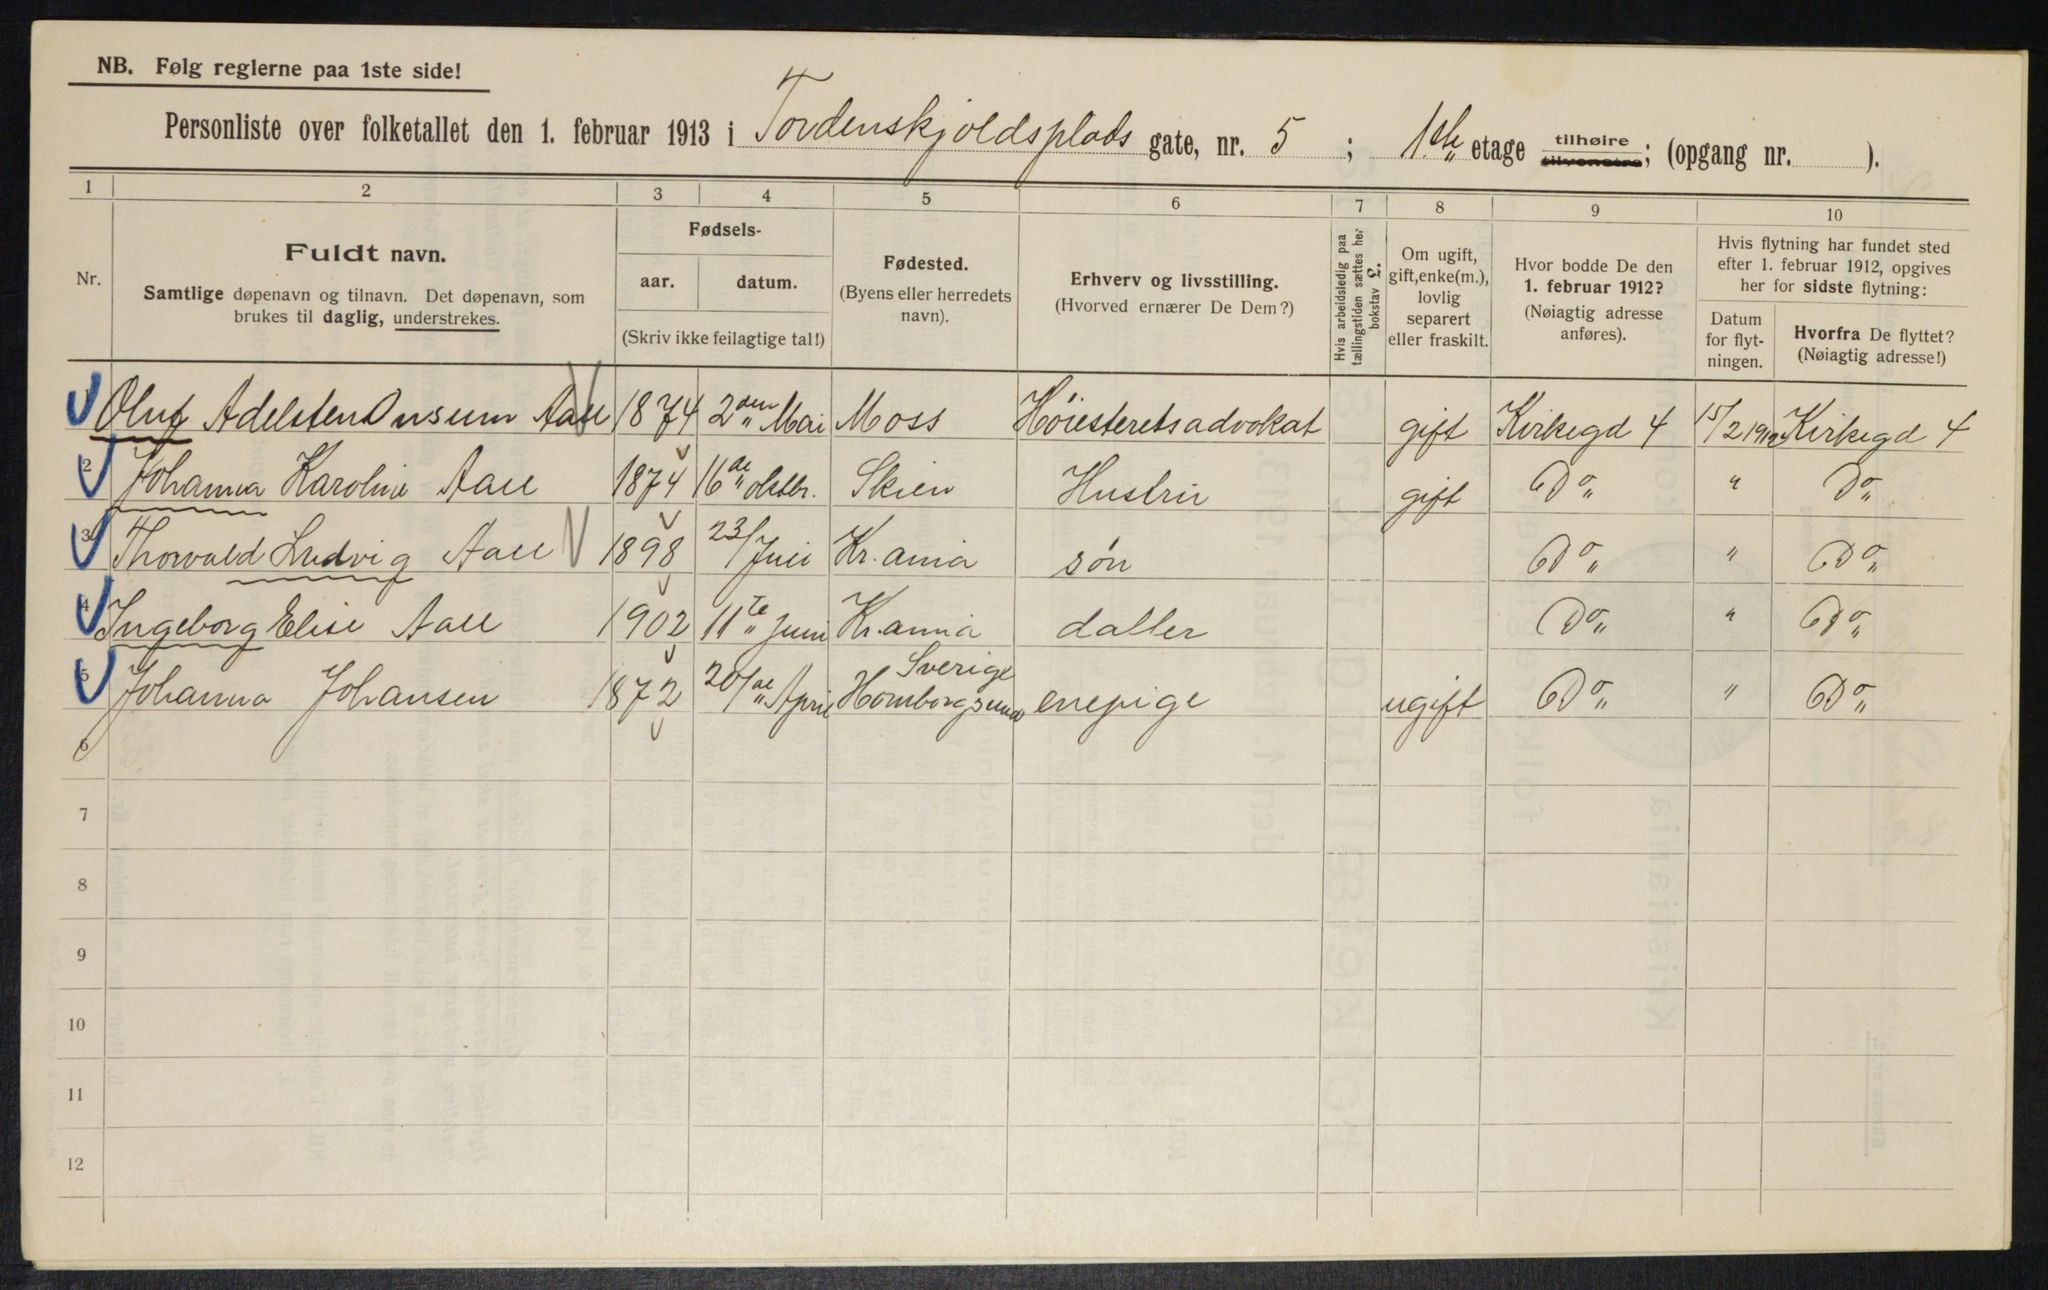 NB. Følg reglerne paa 1ste side!
Personliste over folketallet den 1. februar 1913 i Tordenskjoldsplads gate, nr. 5 ; 1ste etage tilhøire tilvenstre; (opgang nr. ).
1 2 3 4 5 6 7 8 9 10
Nr.
Fuldt navn.
Samtlige døpenavn og tilnavn. Det døpenavn, som
brukes til daglig, understrekes.
Fødsels-
aar. datum.
(Skriv ikke feilagtige tal!)
Fødested.
(Byens eller herredets
navn).
Erhverv og livsstilling.
(Hvorved ernærer De Dem?)
Hvis arbeidsledig paa
tællingstiden sættes her
bokstav L.
Om ugift,
gift, enke(m.),
lovlig
separert
eller fraskilt.
Hvor bodde De den
1. februar 1912?
(Nøiagtig adresse
anføres).
Hvis flytning har fundet sted
efter 1. februar 1912, opgives
her for sidste flytning:
Datum
for flyt-
ningen.
Hvorfra De flyttet?
(Nøiagtig adresse!)
Oluf Adelsten Onsum Aall 1874 2den Mai Moss Høiesteretsadvokat gift Kirkegd 4 15/2 1912 Kirkegd 4
2 Johanna Karoline Aall 1874 16de oktbr. Skien Hustru gift Do „ Do
3 Thorvald Ludvig Aall 1898 23/ Juli Kr.ania søn Do „ Do
4 Ingeborg Elise Aall 1902 11te Juni Kr.ania datter Do „ Do
5 Johanna Johansen 1872 20/de April Sverige Hömborgsund enepige ugift Do „ Do
6
7
8
9
10
11
12